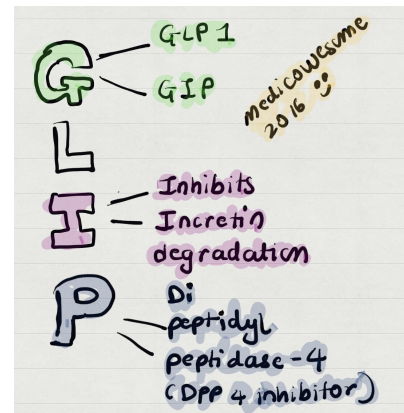 G
GLP1
GIP
medicowesome
2016
L
I
Inhibits
Incretin
degradation
P
Di
peptidyl
peptidase-4
(DPP 4 inhibitor)